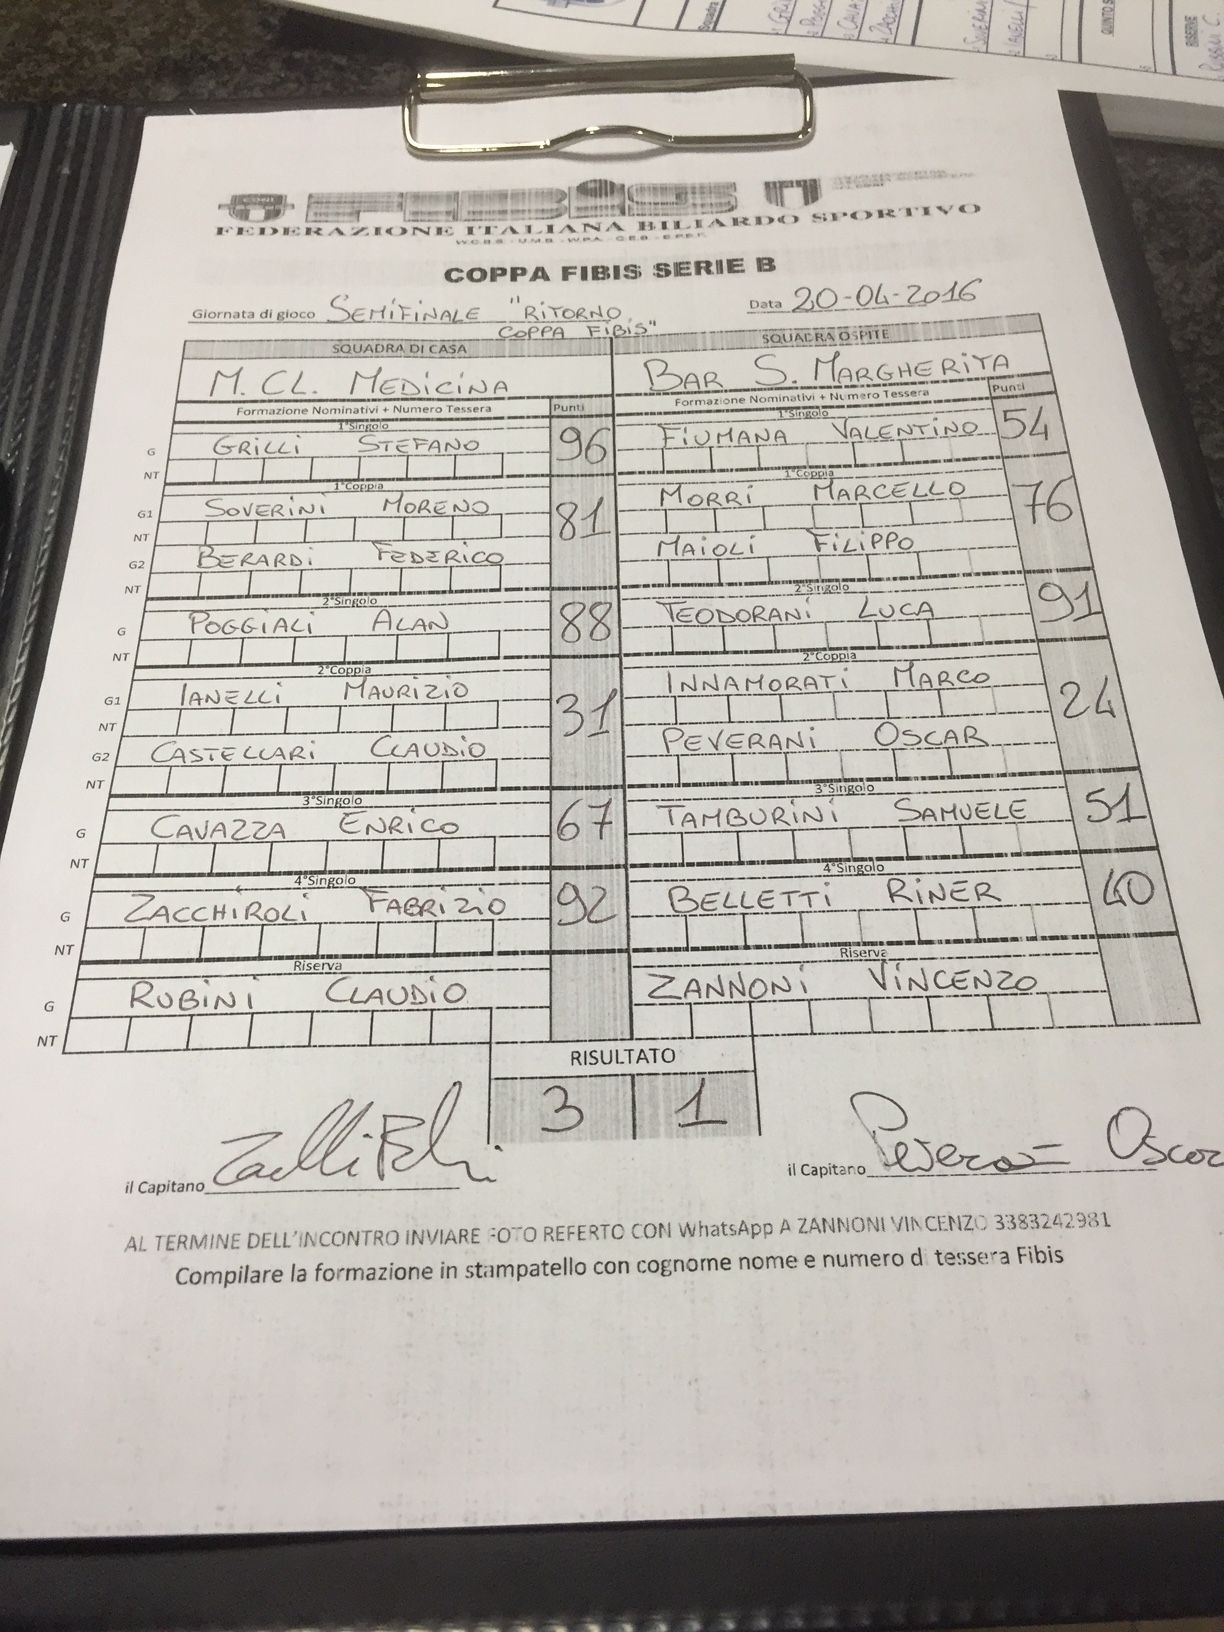 FEDERAZIONE ITALIANA BILIARDO SPORTIVO
COPPA FIBIS SERIE B
Giornata di gioco SEMIFINALE "RITORNO COPPA FIBIS" Data 20-04-2016
SQUADRA DI CASA SQUADRA OSPITE
M. CL. MEDICINA BAR S. MARGHERITA
Formazione Nominativi + Numero Tessera Punti Formazione Nominativi + Numero Tessera Punti
1°Singolo 1°Singolo
G GRILLI STEFANO 96 FIUMANA VALENTINO 54
NT
1°Coppia 1°Coppia
G1 SOVERINI MORENO 81 MORRI MARCELLO 76
NT
G2 BERARDI FEDERICO MAIOLI FILIPPO
NT
2°Singolo 2°Singolo
G POGGIALI ALAN 88 TEODORANI LUCA 91
NT
2°Coppia 2°Coppia
G1 IANELLI MAURIZIO 31 INNAMORATI MARCO 24
NT
G2 CASTELLARI CLAUDIO PEVERANI OSCAR
NT
3°Singolo 3°Singolo
G CAVAZZA ENRICO 67 TAMBURINI SAMUELE 51
NT
4°Singolo 4°Singolo
G ZACCHIROLI FABRIZIO 92 BELLETTI RINER 40
NT
Riserva Riserva
G RUBINI CLAUDIO ZANNONI VINCENZO
NT
RISULTATO
3 1
il Capitano il Capitano Oscar
AL TERMINE DELL'INCONTRO INVIARE FOTO REFERTO CON WhatsApp A ZANNONI VINCENZO 3383242981
Compilare la formazione in stampatello con cognome nome e numero di tessera Fibis